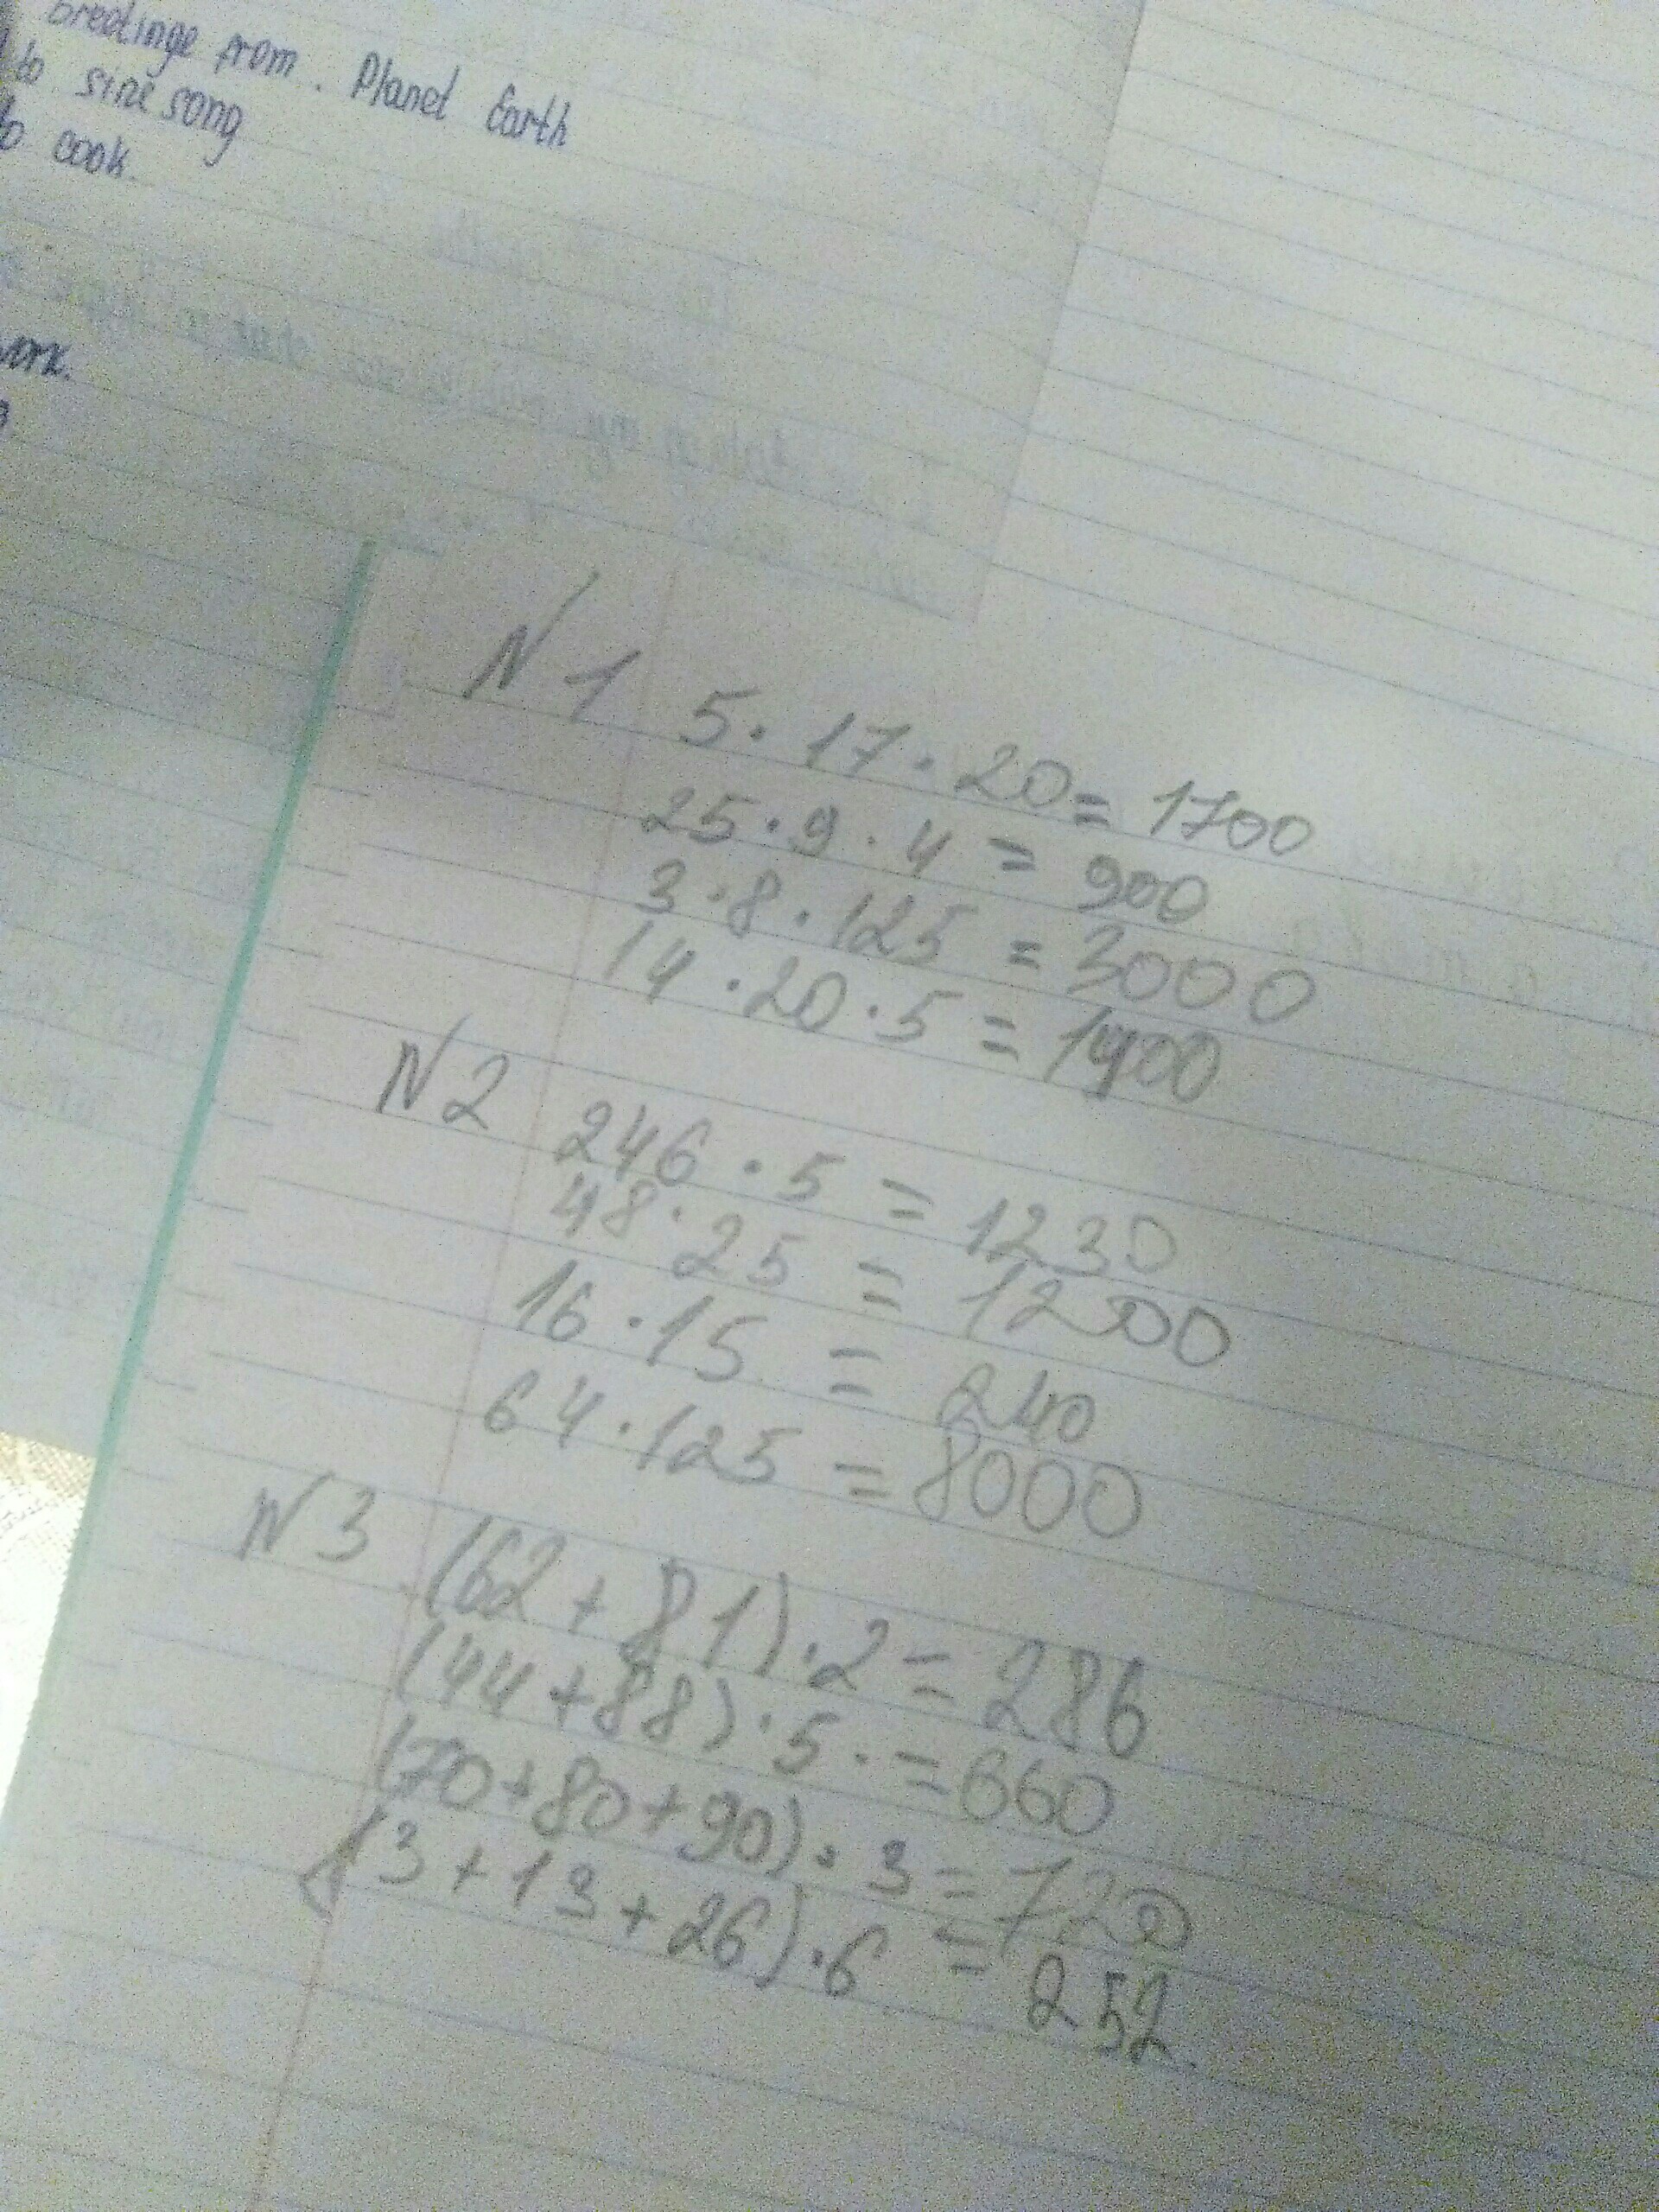 Greetinge from. Planet Earth
to sine song
to cook.
N 1 5 · 17 · 20 = 1700
25 · 9 · 4 = 900
3 · 8 · 125 = 3000
14 · 20 · 5 = 1400
N 2 246 · 5 = 1230
48 · 25 = 1200
16 · 15 = 240
64 · 125 = 8000
N 3 (62 + 81) · 2 = 286
(44 + 88) · 5 · = 660
(70 + 80 + 90) · 3 = 720
(3 + 13 + 26) · 6 = 252.